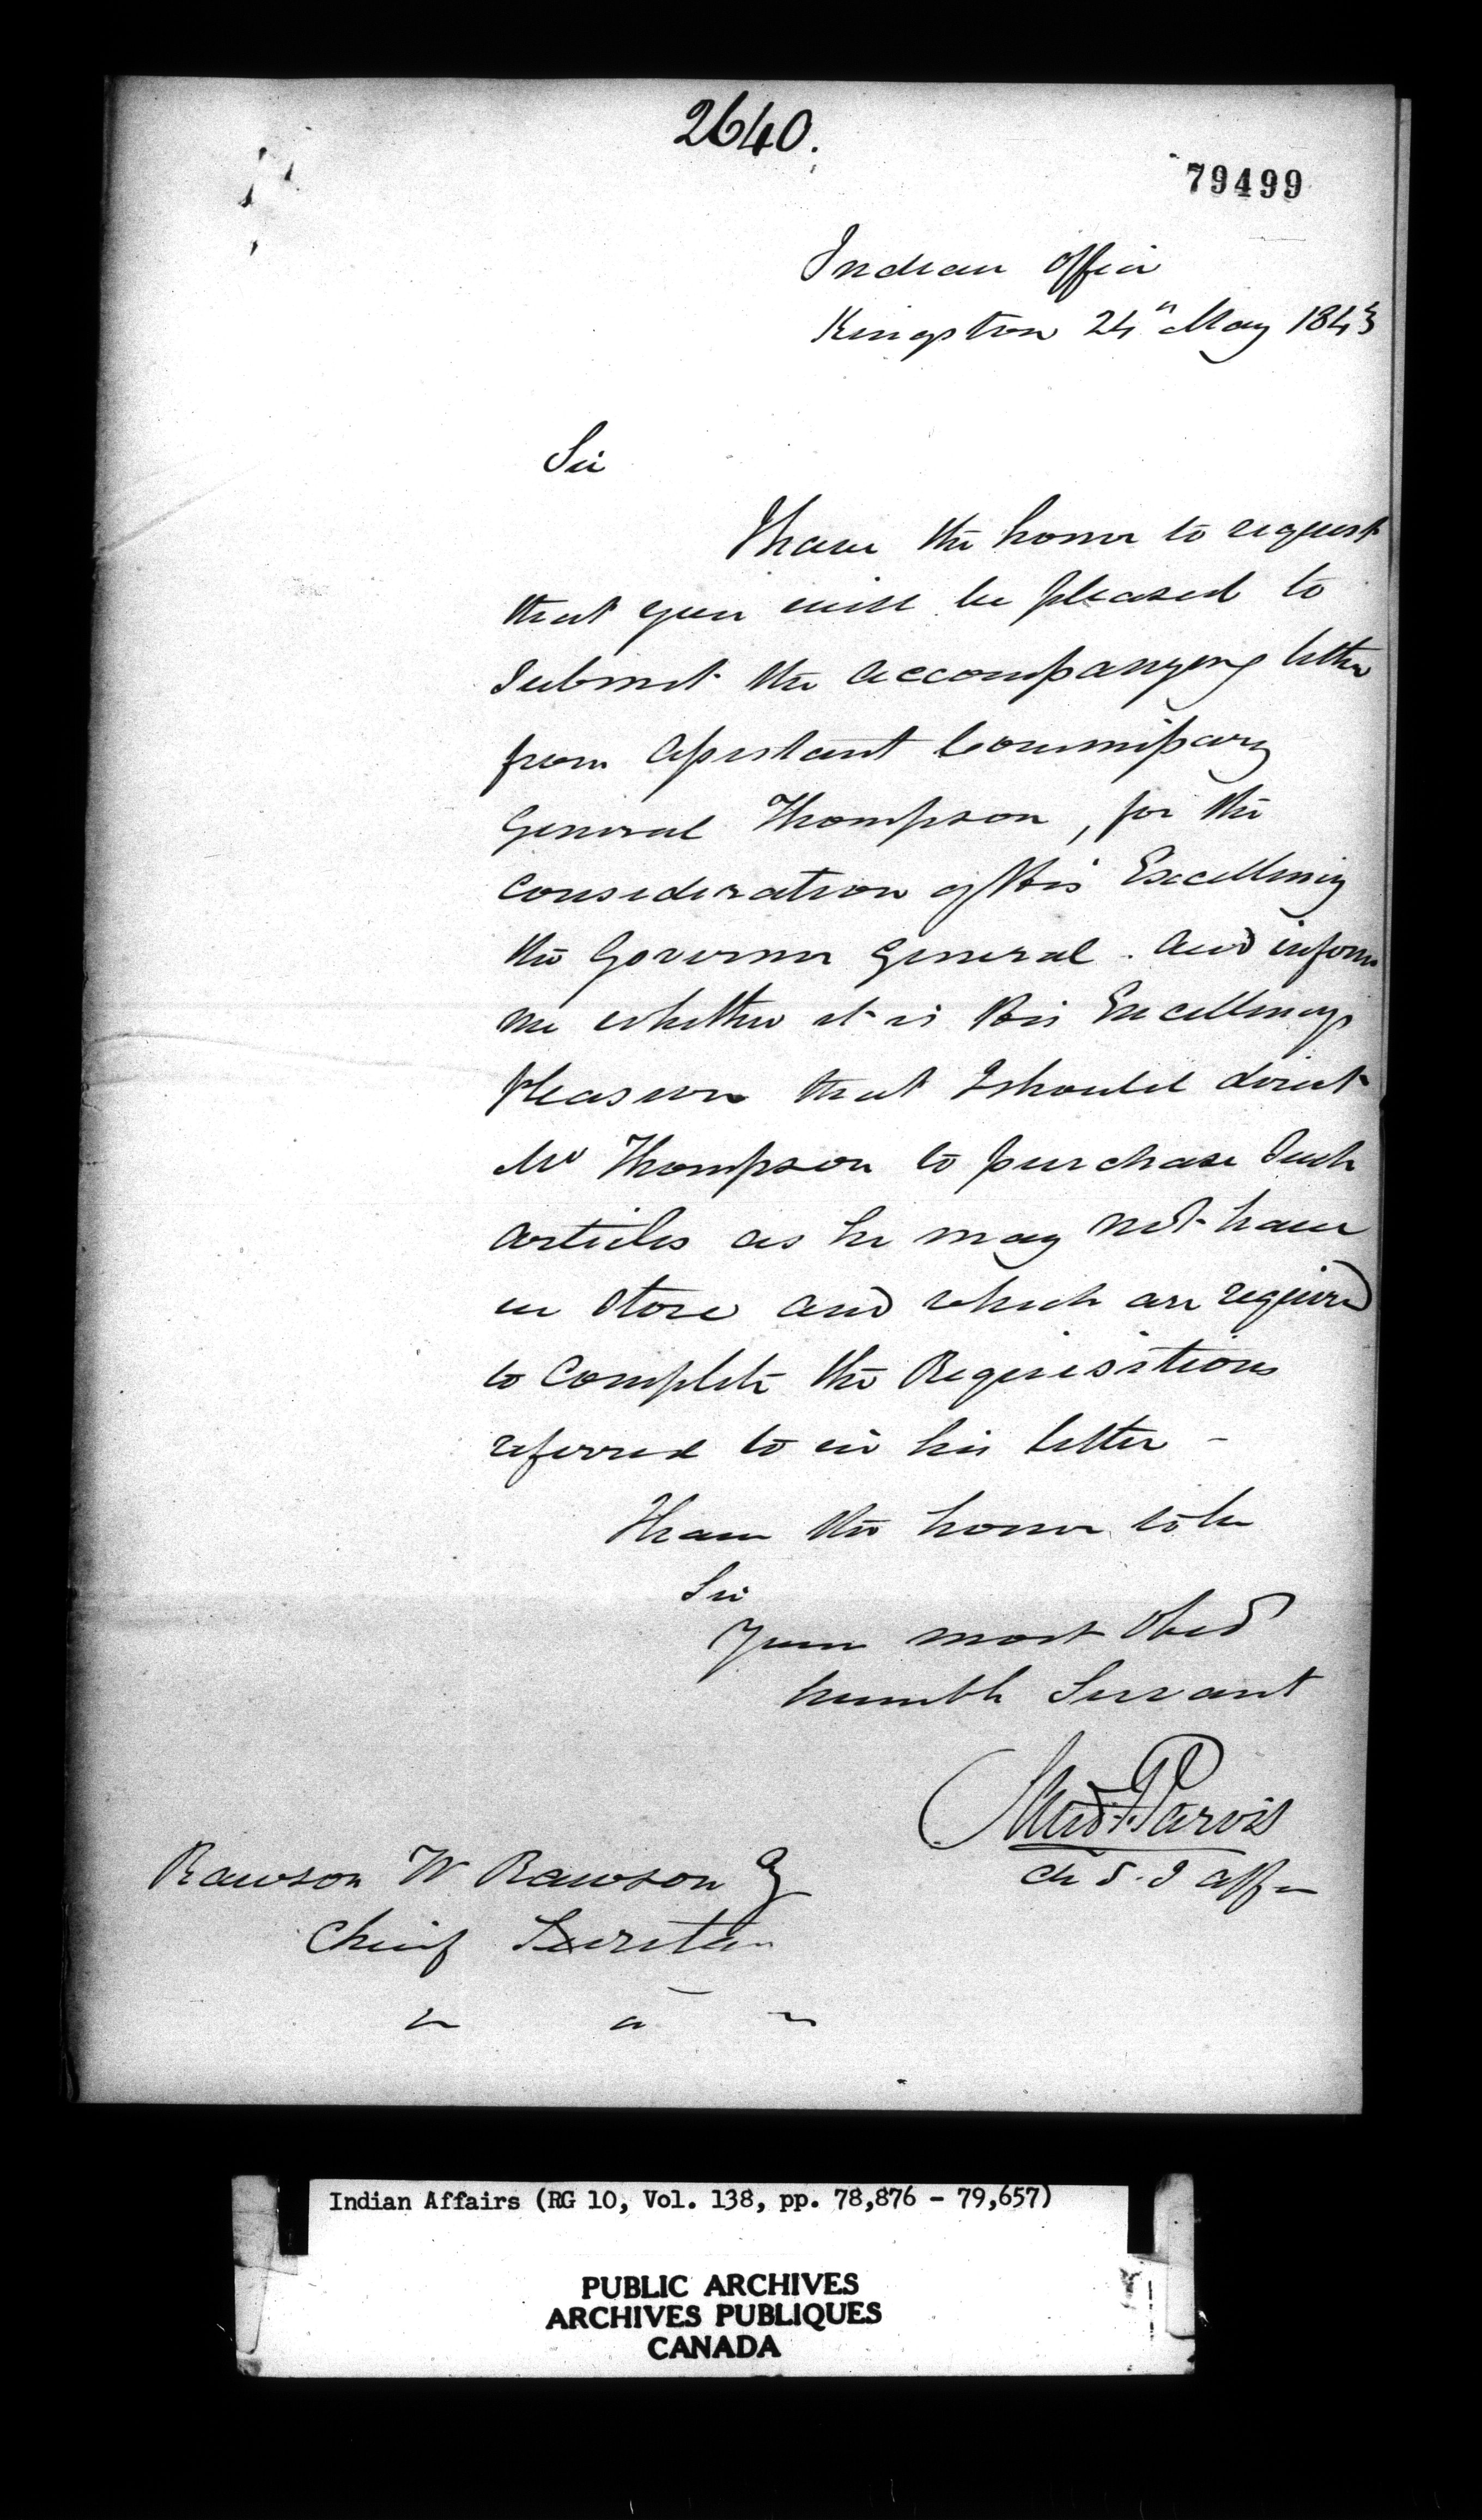 2640.
79499
Indian Office
Kingston 24th May 1843
Sir
I have the honor to request
that you will be pleased to
Submit the accompanying letter
from Assistant Commissary
General Thompson, for the
Consideration of His Excellency
the Governor General. And inform
me whether it is His Excellencys
pleasure that I should direct
Mr Thompson to purchase Such
articles as he may not have
in Store and which are required
to Complete the Requisitions
referred to in his letter -
I have the honor to be
Sir
Your most Obed
humble Servant
Saml P Jarvis
Rawson W Rawson Esq
Ch S. I Aff
Chief Secretary
Indian Affairs (RG 10, Vol. 138, pp. 78,876 - 79,657)
PUBLIC ARCHIVES
ARCHIVES PUBLIQUES
CANADA